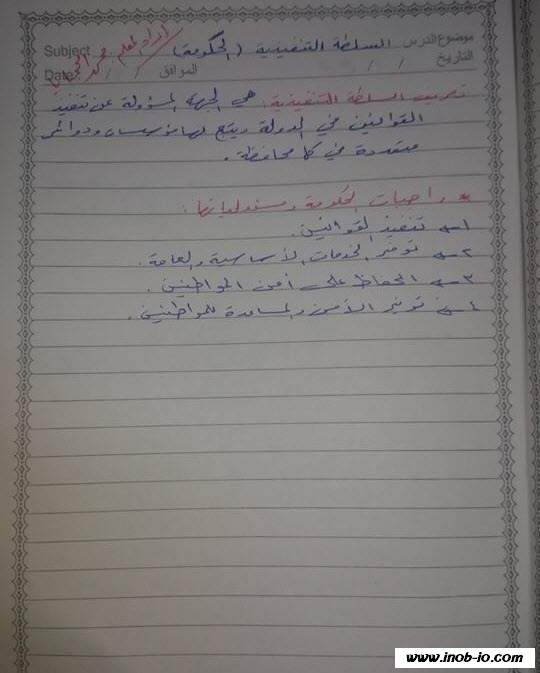 موضوع الدرس السلطة التنفيذية (الحكومة) Subject
إعداد المعلم محمد
التاريخ / / الموافق / / Date
تعريف السلطة التنفيذية: هي الجهة المسؤولة عن تنفيذ
القوانين في الدولة ويتبع لها مؤسسات ودوائر
متعددة في كل محافظة.
* واجبات الحكومة ومسئولياتها:
١- تنفيذ القوانين.
٢- توفير الخدمات الأساسية والعامة.
٣- الحفاظ على أمن المواطنين.
٤- توفير الأمن والمساعدة للمواطنين.
www.inob-io.com